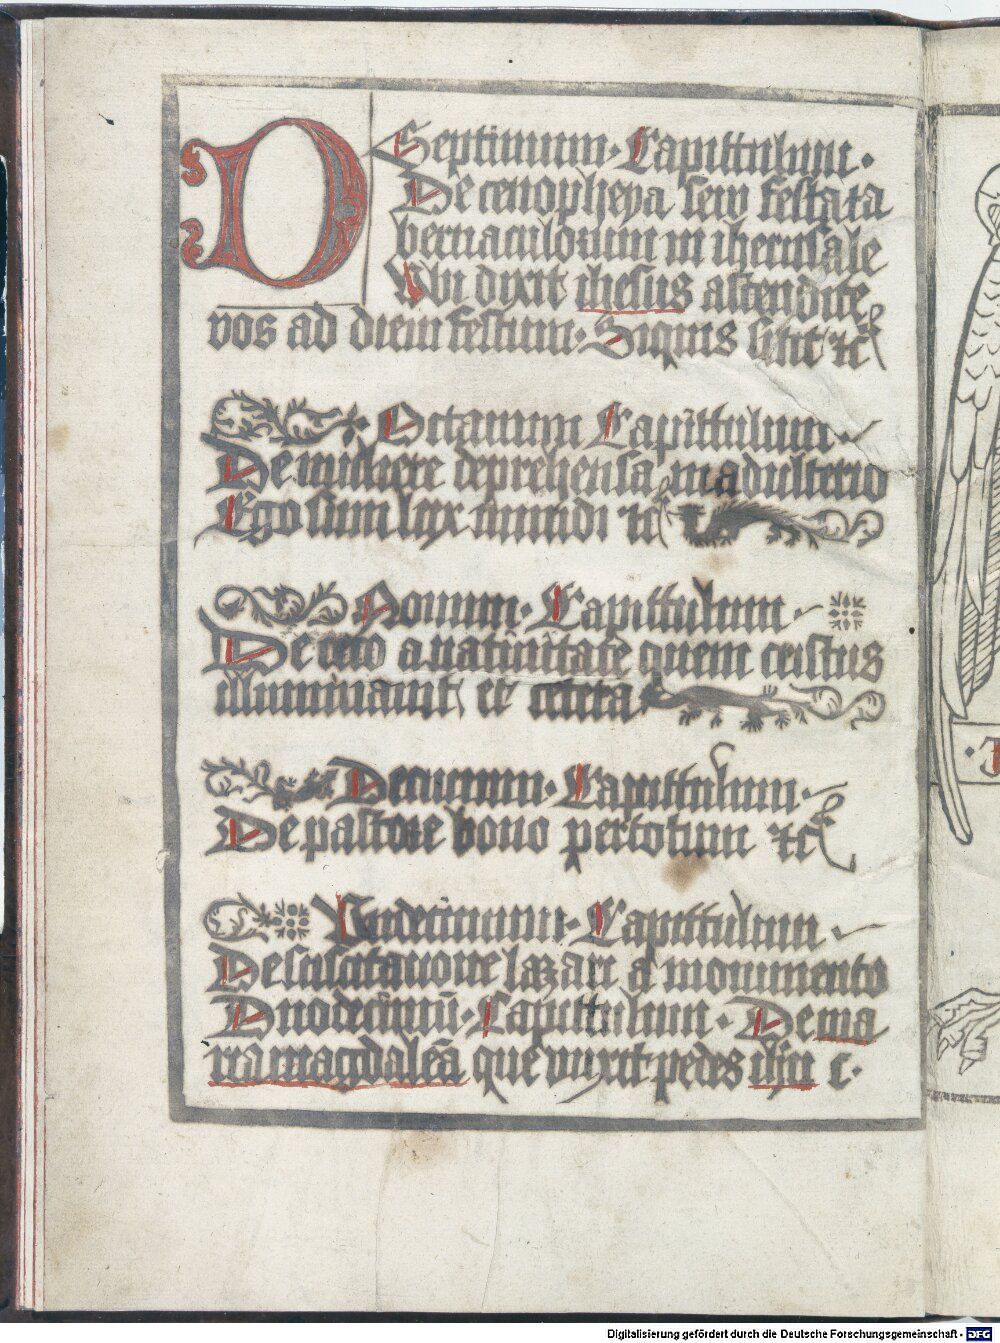 D
Septimum · Capittulum ·
De cenopheya seu festa ta
bernaculorum in iherusale
Ubi dixit ihesus ascendite
vos ad diem festum · Siquis sitit ⁊c
Octauum Capittulum
De muliere deprehensa in adulterio
Ego sum lux mundi ⁊c
Nonum · Capittulum
De ceco a natiuitate quem cristus
illuminauit et cetera
Decimum · Capittulum
De pastore bono per totum ⁊c
Undecimum · Capittulum
De suscitatione lazari a monumento
Duodecimū · Capittulum · De ma
ria magdalēa que vnxit pedes ihū c ·
Digitalisierung gefördert durch die Deutsche Forschungsgemeinschaft - DFG